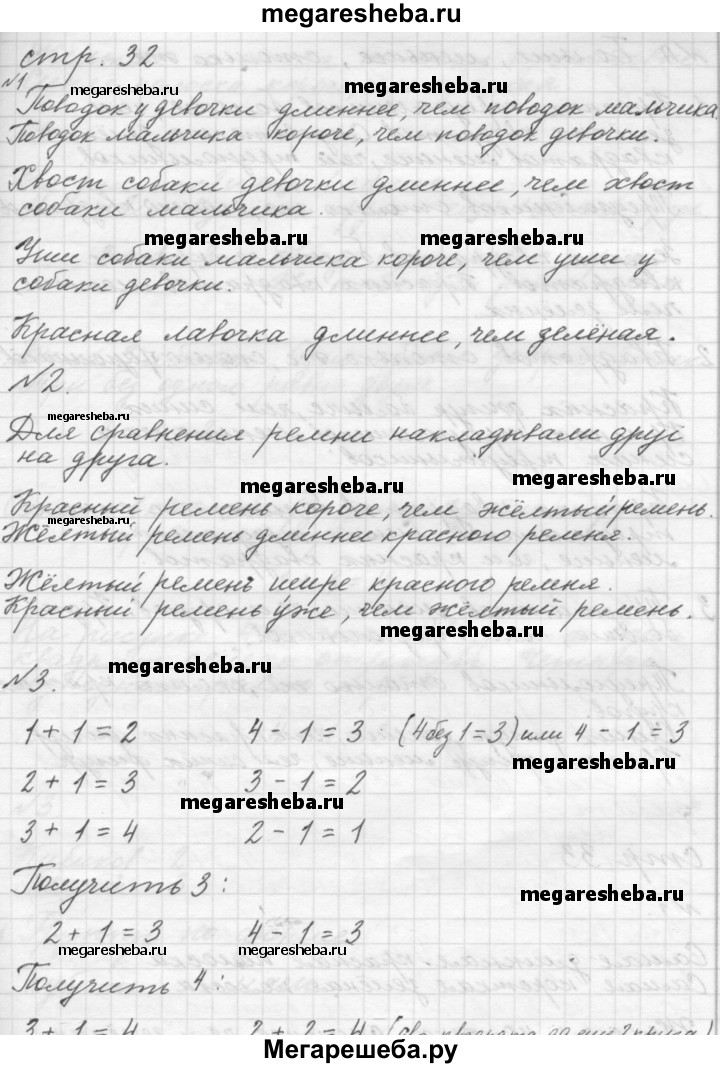 megaresheba.ru
стр. 32
№1
megaresheba.ru megaresheba.ru
Поводок у девочки длиннее, чем поводок мальчика.
Поводок мальчика короче, чем поводок девочки.
Хвост собаки девочки длиннее, чем хвост
собаки мальчика.
megaresheba.ru megaresheba.ru
Уши собаки мальчика короче, чем уши у
собаки девочки.
Красная лавочка длиннее, чем зелёная.
№2.
megaresheba.ru
Для сравнения ремни накладывали друг
на друга.
megaresheba.ru megaresheba.ru
Красный ремень короче, чем жёлтый ремень.
megaresheba.ru
Жёлтый ремень длиннее красного ремня.
Жёлтый ремень шире красного ремня.
Красный ремень уже, чем жёлтый ремень.
megaresheba.ru
megaresheba.ru
№3.
1 + 1 = 2 4 - 1 = 3 (4 без 1 = 3) или 4 - 1 = 3
megaresheba.ru
2 + 1 = 3 3 - 1 = 2
megaresheba.ru
3 + 1 = 4 2 - 1 = 1
Получить 3:
megaresheba.ru
2 + 1 = 3 4 - 1 = 3
megaresheba.ru megaresheba.ru
Получить 4:
3 + 1 = 4 2 + 2 = 4
Мегарешеба.ру